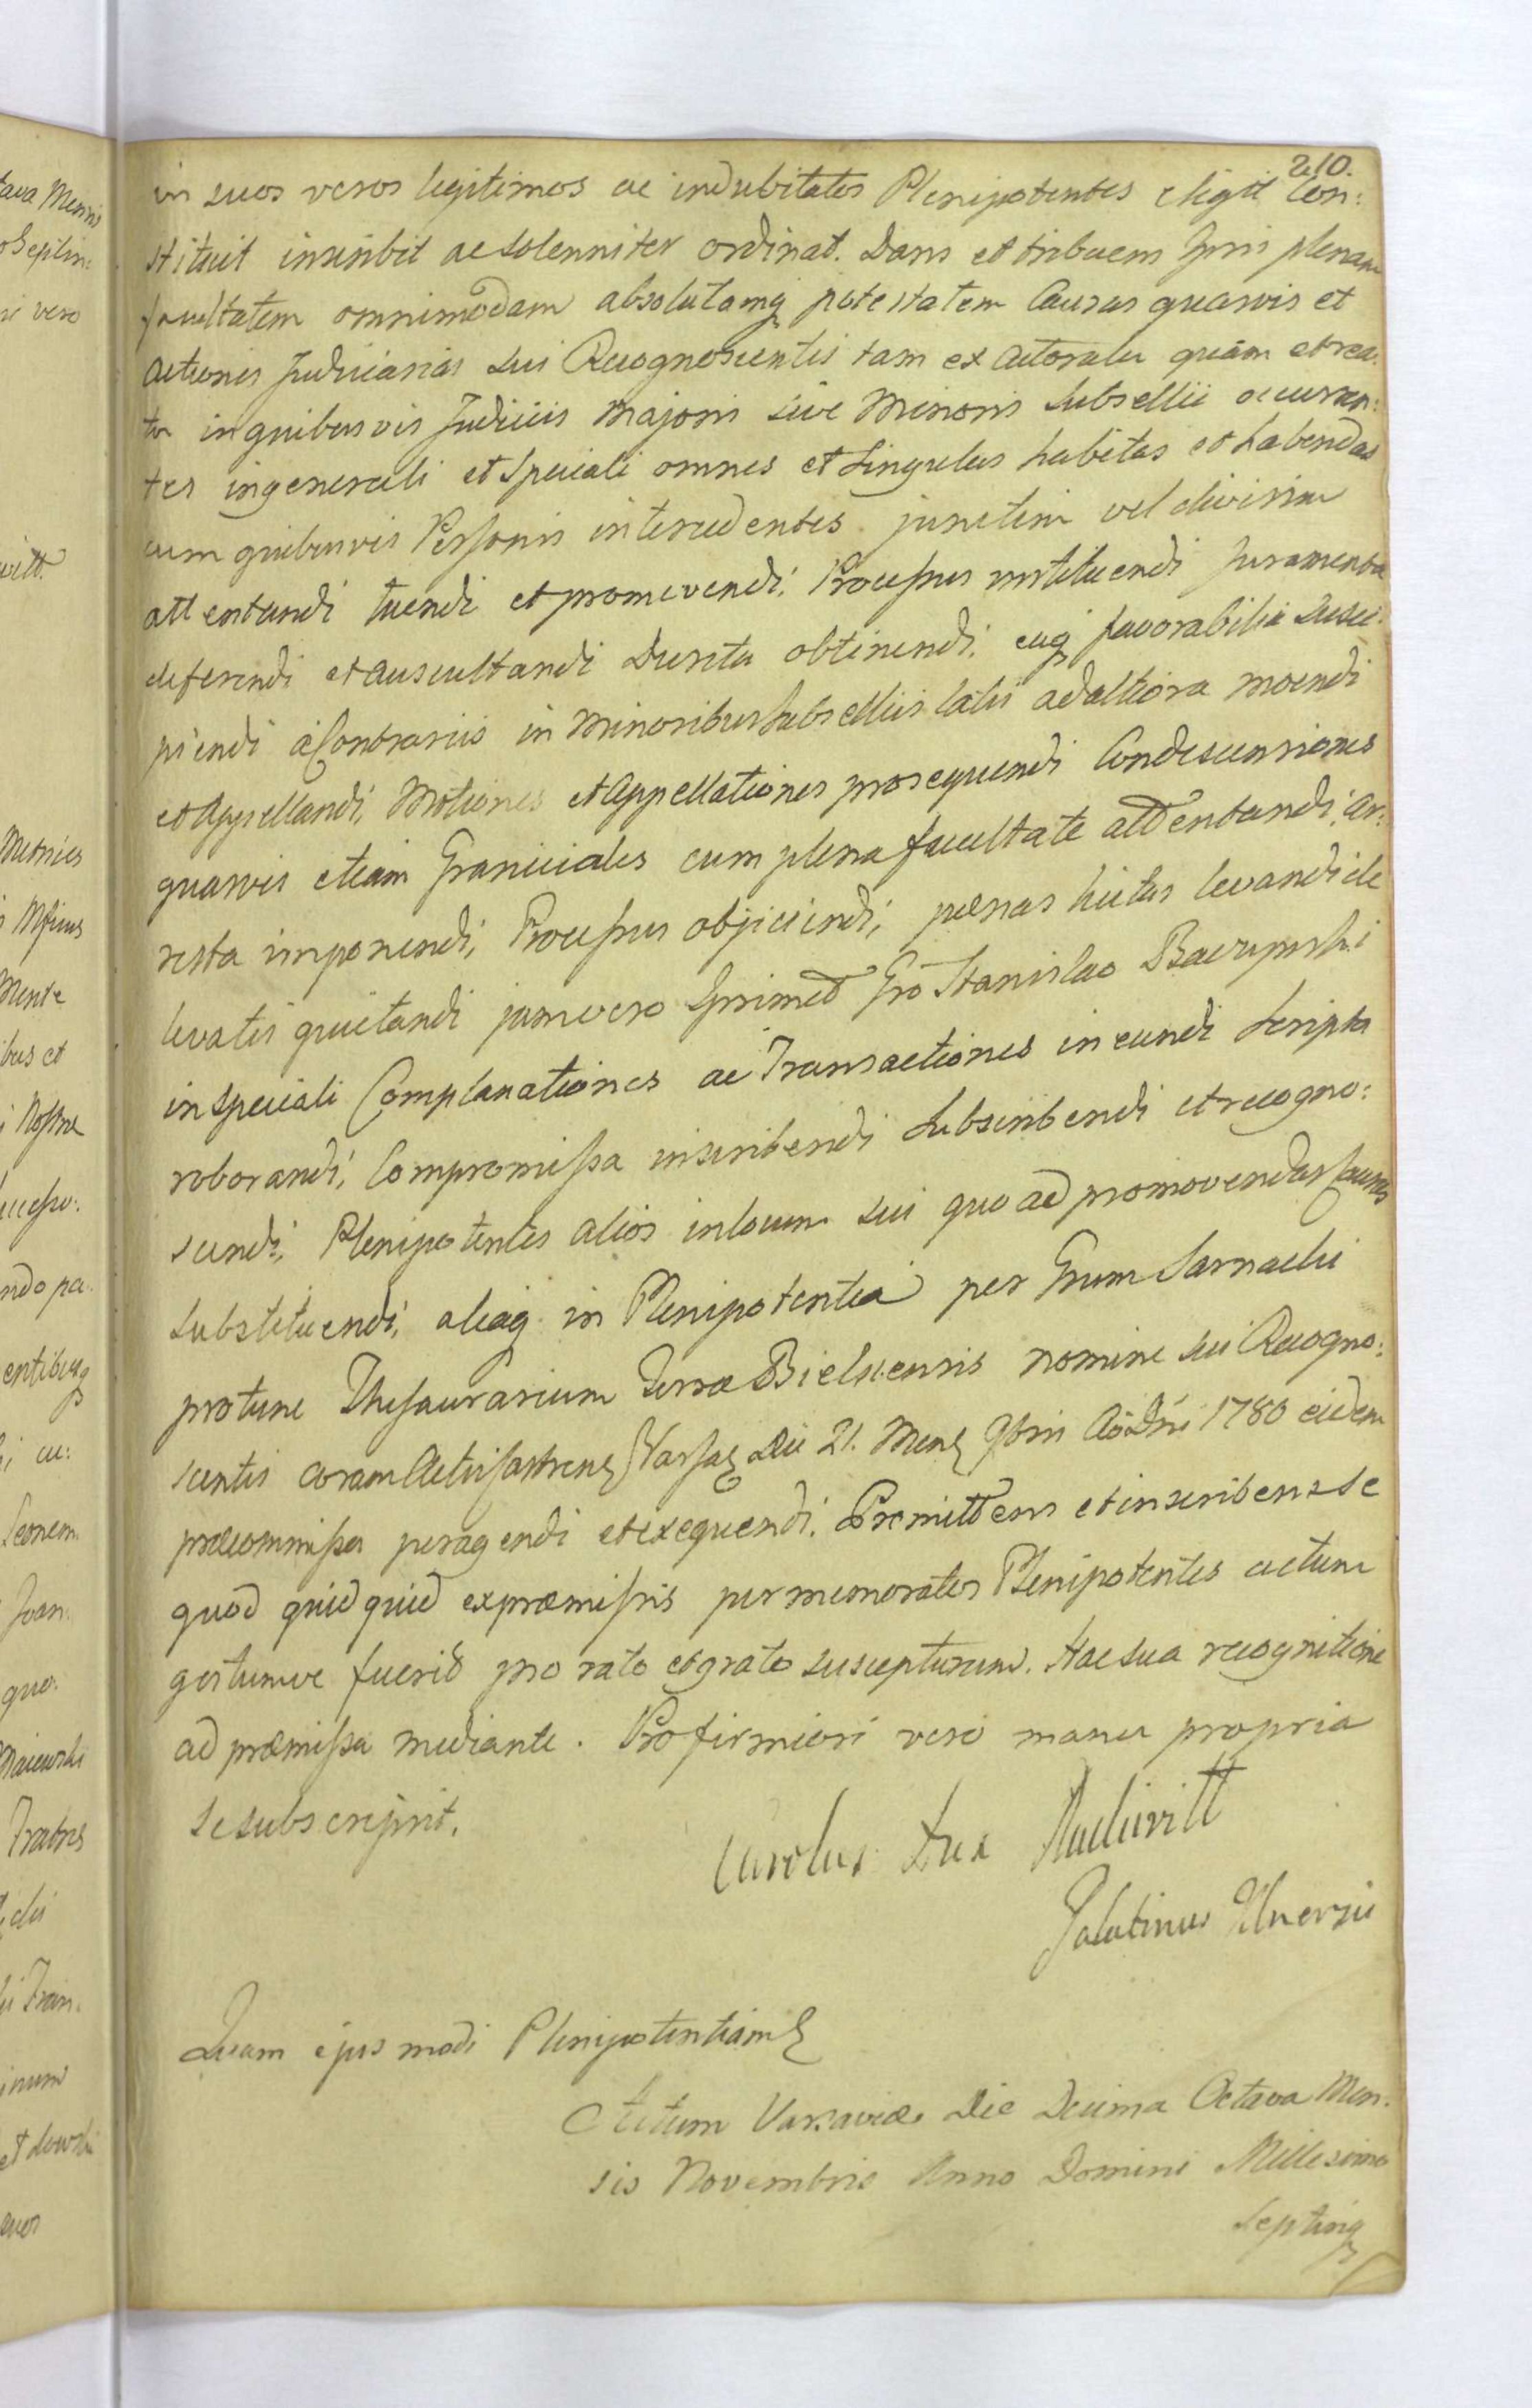 210.
in suos veros legitimos ac indubitatos Plenipotentes eligit Con:
stituit inscribit ac solenniter ordinat. Dans et tribuens Ipsis plenam
facultatem omnimodam absolutamq potestatem Causas quasvis et
actiones Judiciarias sui Recognoscentis tam ex actoratu quàm et rea:
tu in quibusvis Judiciis Majoris sive Minoris Subsellii occurren:
tes in generali et Speciali omnes et Singulas habitas et habendas
cum quibusvis Personis intercedentes junctim vel divisim
attentandi tuendi et promovendi, Processus instituendi Juramenta
deferendi et auscultandi Decreta obtinendi, eaq favorabilia susci:
piendi à Contrariis in Minoribus Subselliis latis ad altiora movendi
et Appellandi, Motiones et Appellationes prosequendi Condescensiones
quasvis etiam Graniciales cum plena facultate attentandi, ar:
resta imponendi, Processus objiciendi, pænas luitas levandi de
levatis quietandi jam vero Ipsimet Gro Stanislao
in Speciali Complanationes ac Transactiones ineundi Scripta
roborandi, Compromissa inscribendi Subscribendi et recogno:
scendi, Plenipotentes alios in locum sui quo ad promovendas Causas
substituendi, aliaq in Plenipotentia per Grum Sarnacki
protunc Thesaurarium Terræ Bielscensis nomine sui Recogno:
scentis coram Actis Castren Varsa Die 21. Mens 9bris Aõ Dni 1780 eidem
præcommissa peragendi et exequendi. Promittens et inscribens se
quod quidquid expræmissis per memoratos Plenipotentes actum
gestumve fuerit pro rato et grato suscepturum. Hac sua recognitione
ad præmissa mediante. Pro firmiori vero manu propria
se subscripsit.
Carolus Dux Radzivitt
Palatinus Vilnensis
Quam ejusmodi Plenipotentiam
Actum Varsaviæ Die Decima Octava Men:
sis Novembris Anno Domini Millesimo
Septing